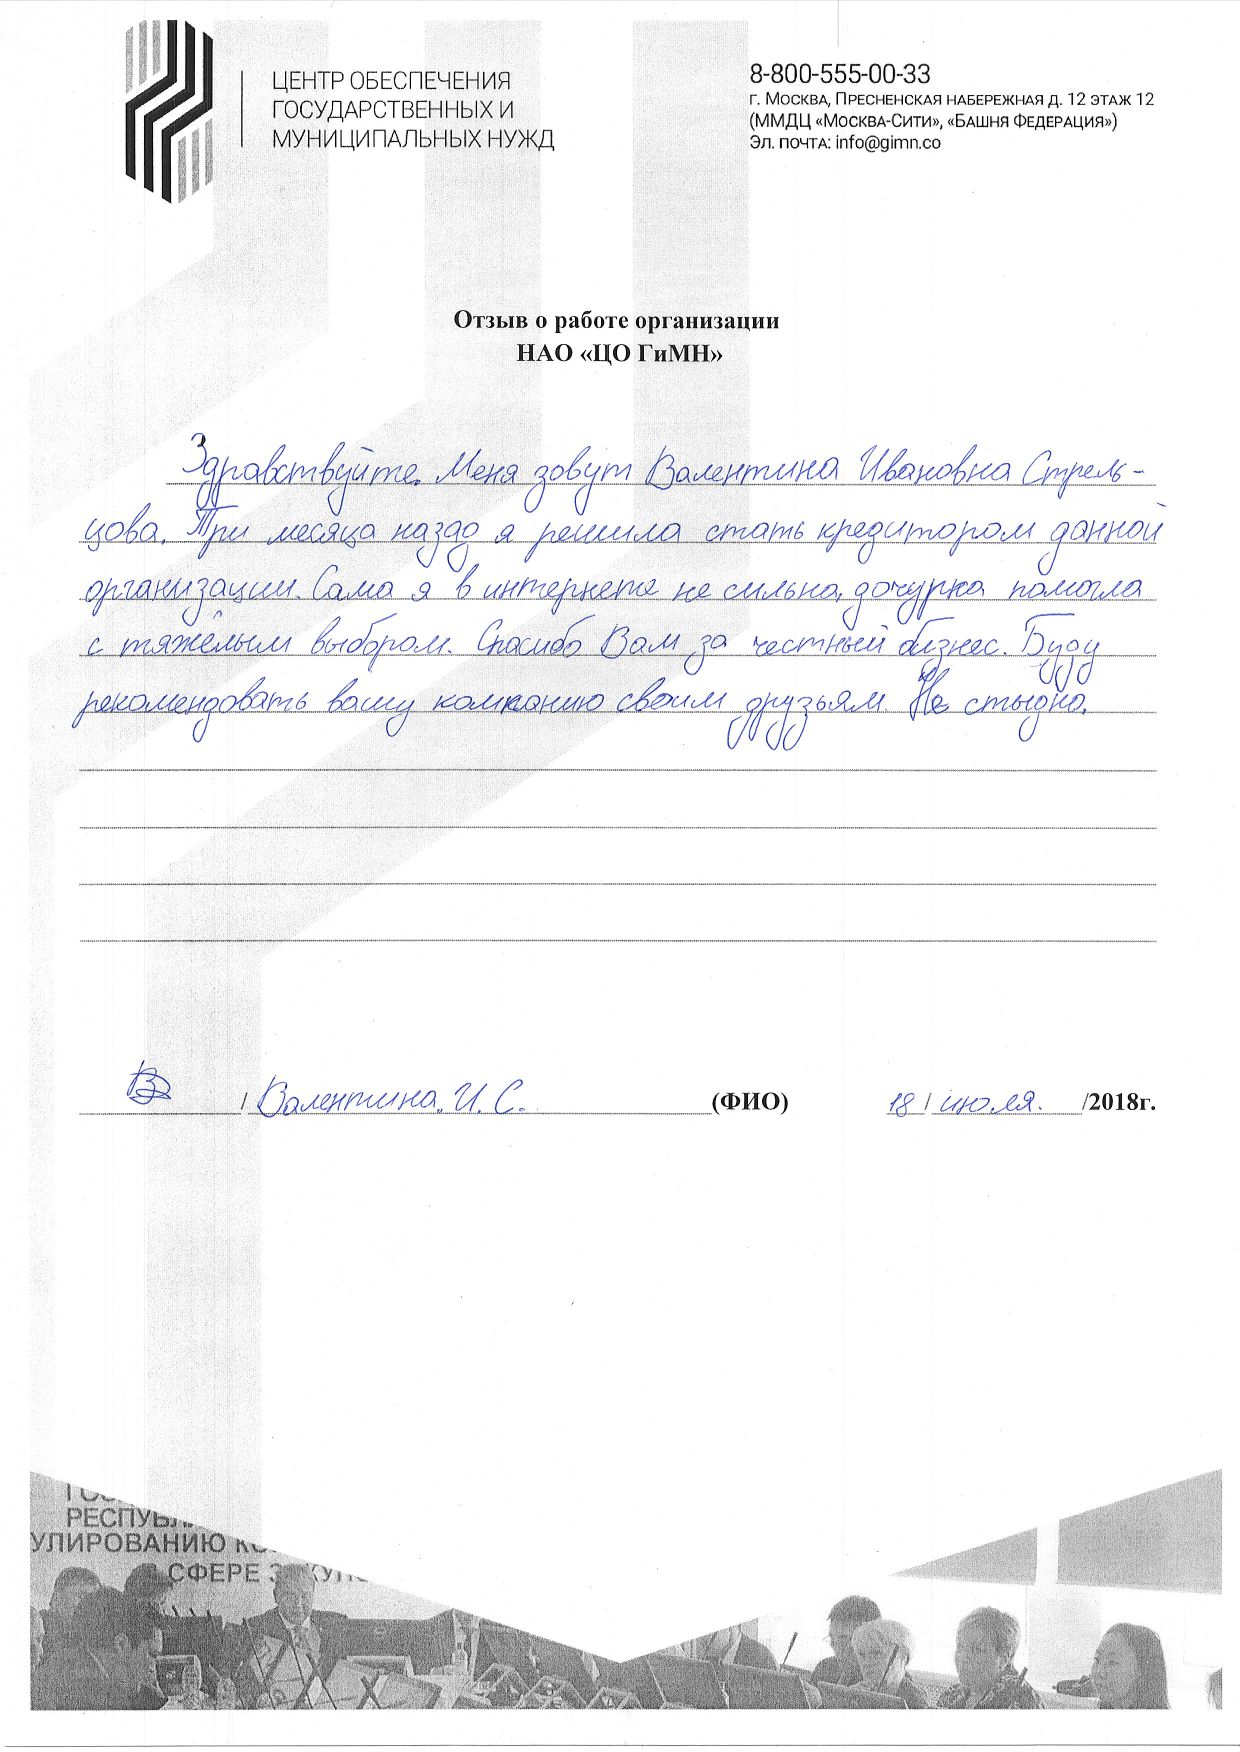 ЦЕНТР ОБЕСПЕЧЕНИЯ
ГОСУДАРСТВЕННЫХ И
МУНИЦИПАЛЬНЫХ НУЖД
8-800-555-00-33
г. Москва, Пресненская набережная д. 12 этаж 12
(ММДЦ «Москва-Сити», «Башня Федерация»)
Эл. почта: info@gimn.co
Отзыв о работе организации
НАО «ЦО ГиМН»
Здравствуйте. Меня зовут Валентина Ивановна Стрель-
цова. Три месяца назад я решила стать кредитором данной
организации. Сама я в интернете не сильна, дочурка помогла
с тяжёлым выбором. Спасибо Вам за честный бизнес. Буду
рекомендовать вашу компанию своим друзьям. Не стыдно.
/ Валентина. И. С. (ФИО) 18 / июля. /2018г.
РЕСПУБЛ
УЛИРОВАНИЮ КО
СФЕРЕ ЗАКУП